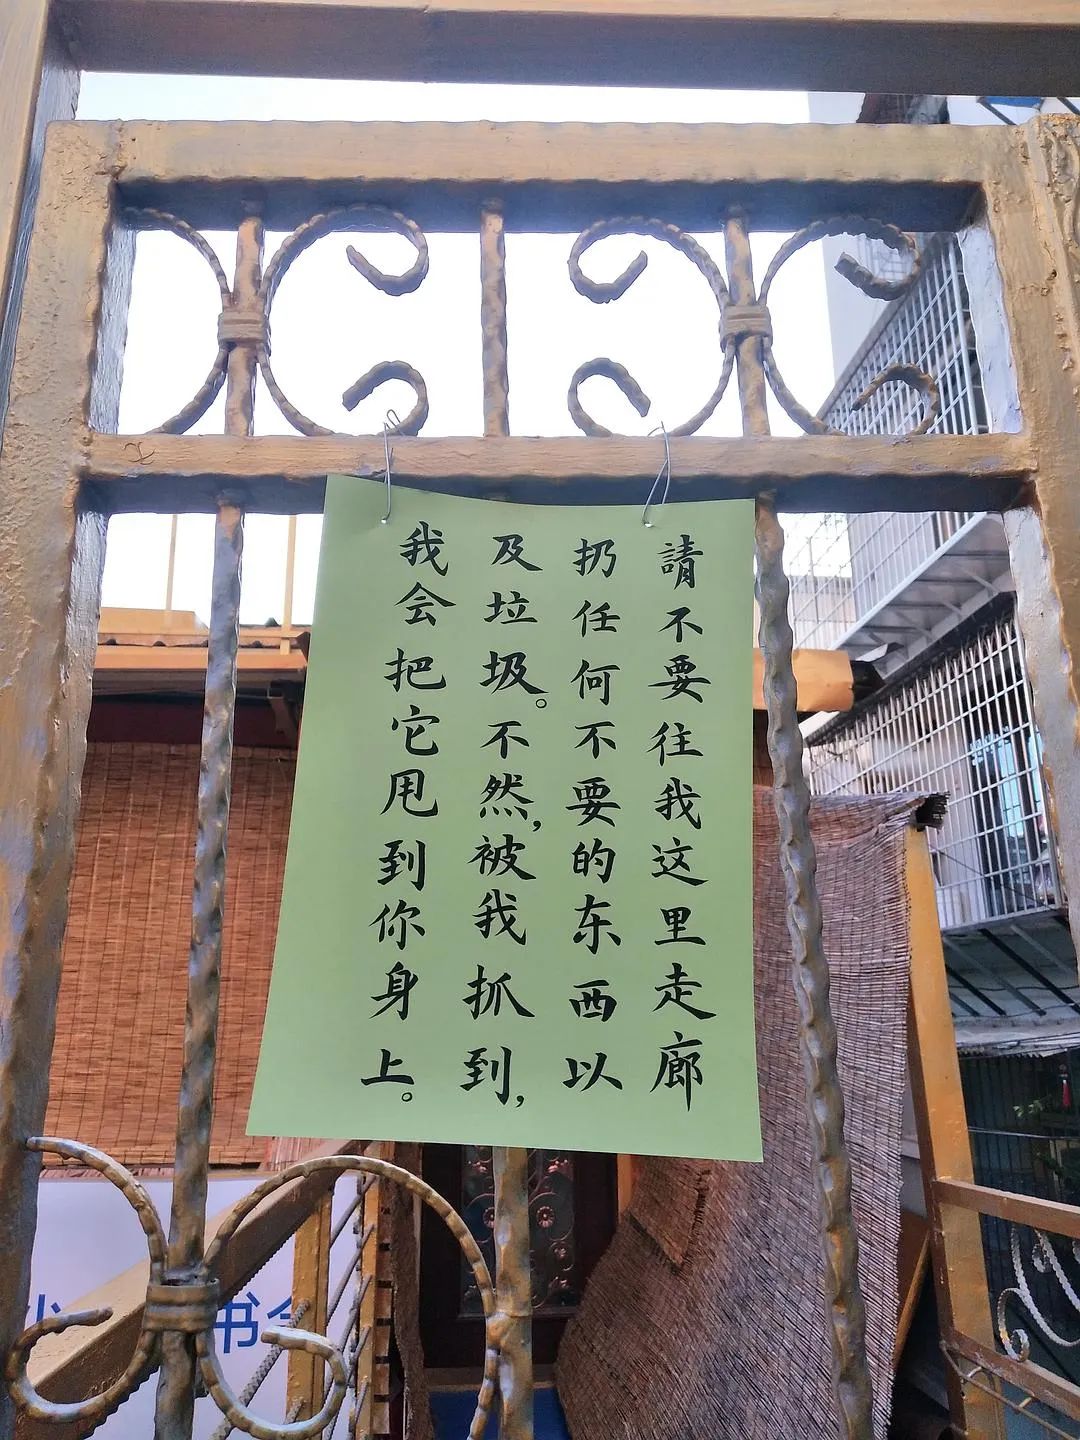 請不要往我这里走廊
扔任何不要的东西以
及垃圾。不然,被我抓到,
我会把它甩到你身上。
书会